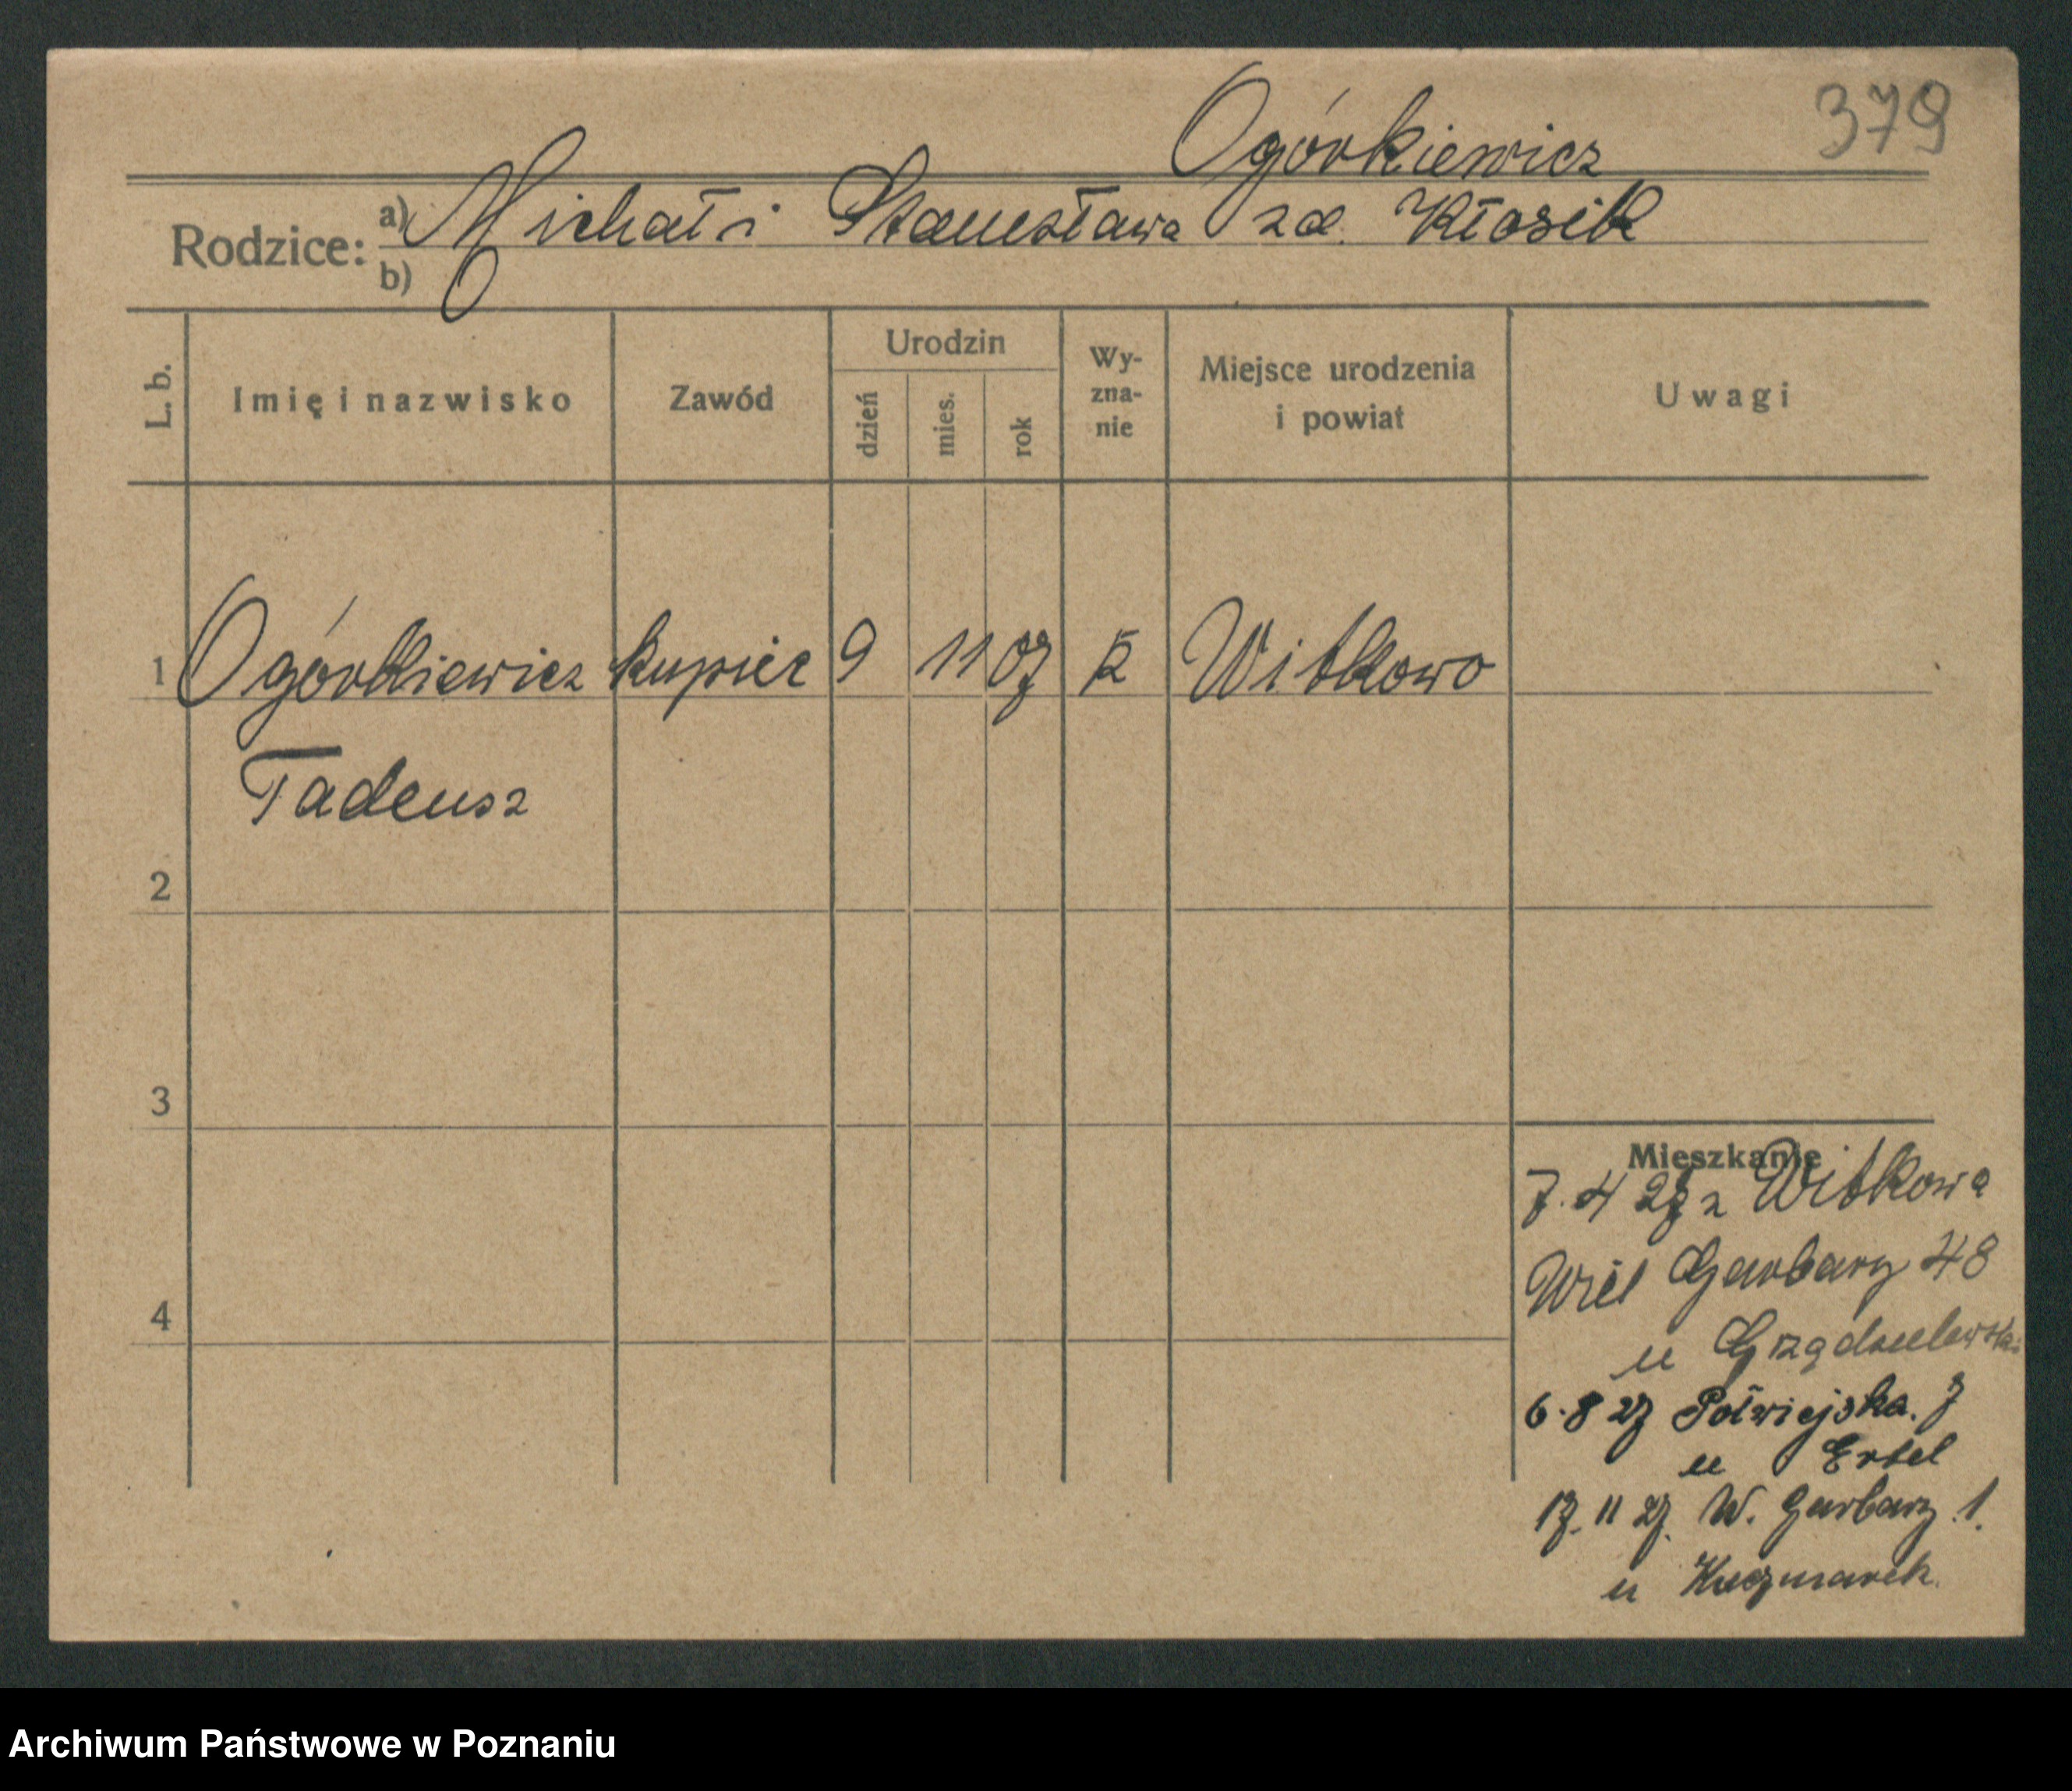 379
Ogórkiewicz
Rodzice: a) Michał i Stanisława zd. Kłosik
b)
L. b. Imię i nazwisko Zawód Urodzin dzień mies. rok Wy-zna-nie Miejsce urodzenia i powiat Uwagi
1 Ogórkiewicz kupiec 9 11 07 k Witkowo
Tadeusz
2
3
4
Mieszkanie
7. 4 27 z Witkowa
Wiel Garbary 48
u
6. 8 27 Półwiejska. 7
u Ertel
17. 11 27. W. Garbary 1.
u Kaczmarek.
Archiwum Państwowe w Poznaniu